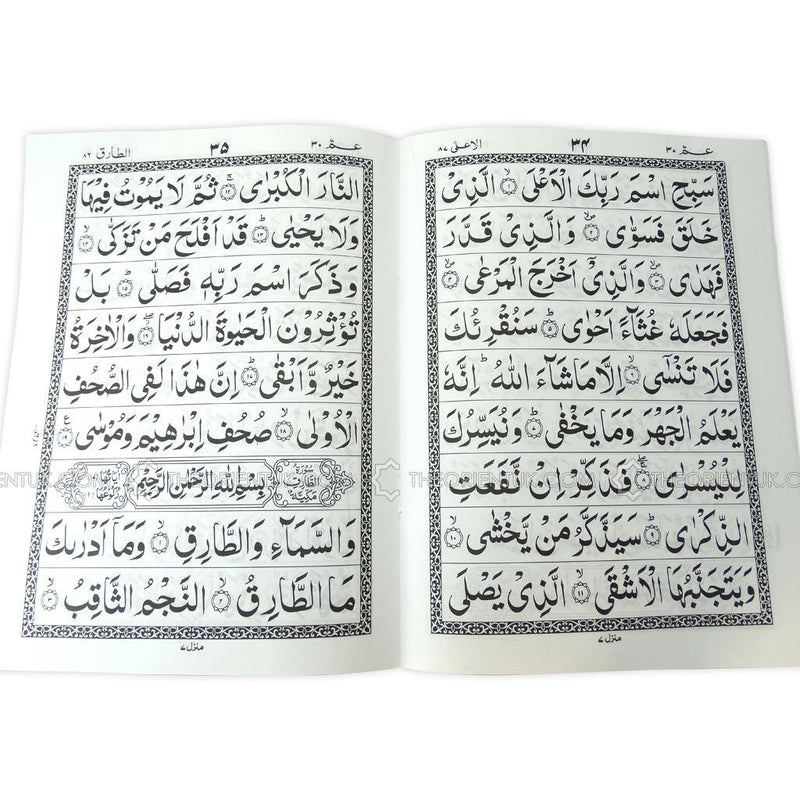 عم ٣٠ ٣٤ الاعلى ٨٧
سَبِّحِ اسْمَ رَبِّكَ الْاَعْلَى ۙ﴿١﴾ الَّذِیْ
خَلَقَ فَسَوّٰى ۪ۙ﴿٢﴾ وَالَّذِیْ قَدَّرَ
فَهَدٰى ۪ۙ﴿٣﴾ وَالَّذِیْۤ اَخْرَجَ الْمَرْعٰى ۪ۙ﴿٤﴾
فَجَعَلَهٗ غُثَآءً اَحْوٰى ؕ﴿٥﴾ سَنُقْرِئُكَ
فَلَا تَنْسٰۤى ۙ﴿٦﴾ اِلَّا مَا شَآءَ اللّٰهُ ؕ اِنَّهٗ
یَعْلَمُ الْجَهْرَ وَمَا یَخْفٰى ؕ﴿٧﴾ وَنُیَسِّرُكَ
لِلْیُسْرٰى ۚۖ﴿٨﴾ فَذَكِّرْ اِنْ نَّفَعَتِ
الذِّكْرٰى ؕ﴿٩﴾ سَیَذَّكَّرُ مَنْ یَّخْشٰى ۙ﴿١٠﴾
وَیَتَجَنَّبُهَا الْاَشْقَى ۙ﴿١١﴾ الَّذِیْ یَصْلَى
منزل ٧
عم ٣٠ ٣٥ الطارق ٨٦
النَّارَ الْكُبْرٰى ۚ﴿١٢﴾ ثُمَّ لَا یَمُوْتُ فِیْهَا
وَلَا یَحْیٰى ؕ﴿١٣﴾ قَدْ اَفْلَحَ مَنْ تَزَكّٰى ۙ﴿١٤﴾
وَذَكَرَ اسْمَ رَبِّهٖ فَصَلّٰى ؕ﴿١٥﴾ بَلْ
تُؤْثِرُوْنَ الْحَیٰوةَ الدُّنْیَا ۖ﴿١٦﴾ وَالْاٰخِرَةُ
خَیْرٌ وَّاَبْقٰى ؕ﴿١٧﴾ اِنَّ هٰذَا لَفِی الصُّحُفِ
الْاُوْلٰى ۙ﴿١٨﴾ صُحُفِ اِبْرٰهِیْمَ وَمُوْسٰى ﴿١٩﴾
سورة الطارق مكية بِسْمِ اللّٰهِ الرَّحْمٰنِ الرَّحِیْمِ
وَالسَّمَآءِ وَالطَّارِقِ ۙ﴿١﴾ وَمَاۤ اَدْرٰىكَ
مَا الطَّارِقُ ۙ﴿٢﴾ النَّجْمُ الثَّاقِبُ ۙ﴿٣﴾
منزل ٧
THEORIENTUK.COM